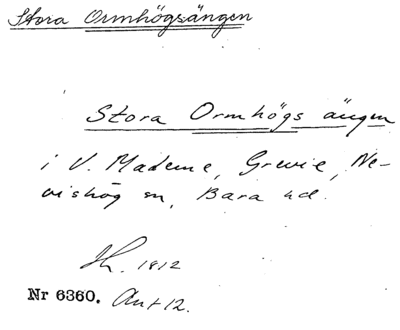 Stora Ormhögsängen
Stora Ormhögs ängen
i V. Maderne, Grevie, Ne-
vishög sn, Bara hd.
Th. 1812
Nr 6360. Ant 12.